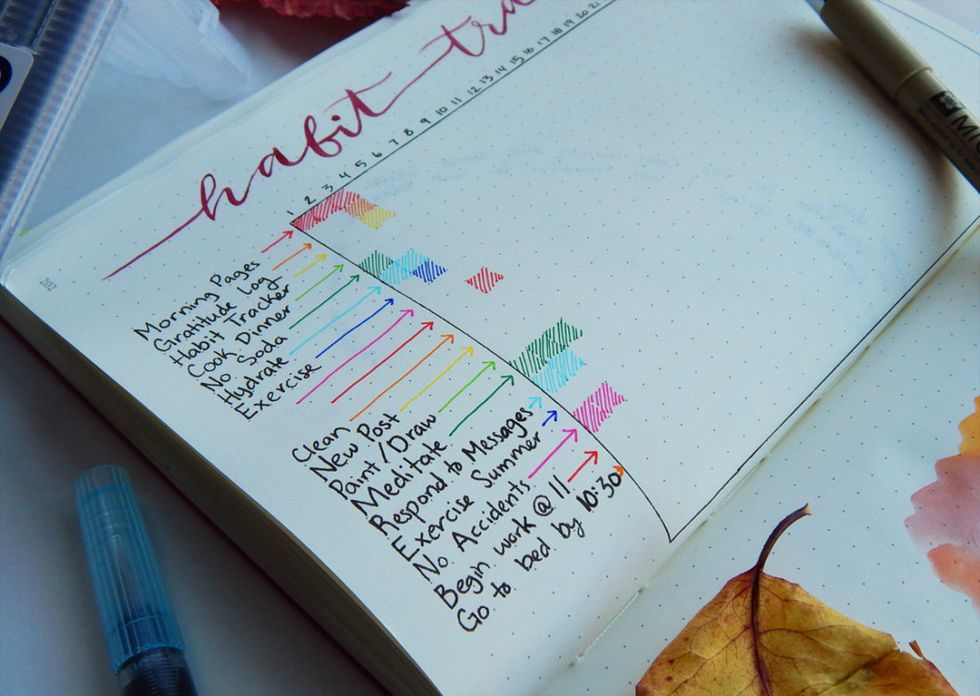 202
habit tra
1 2 3 4 5 6 7 8 9 10 11 12 13 14 15 16 17 18 19 20 21
Morning Pages
Gratitude Log
Habit Tracker
Cook Dinner
No Soda
Hydrate
Exercise
Clean
New Post
Paint/Draw
Meditate
Respond to Messages
Exercise Summer
No Accidents
Begin work @ 11
Go to bed by 10:30